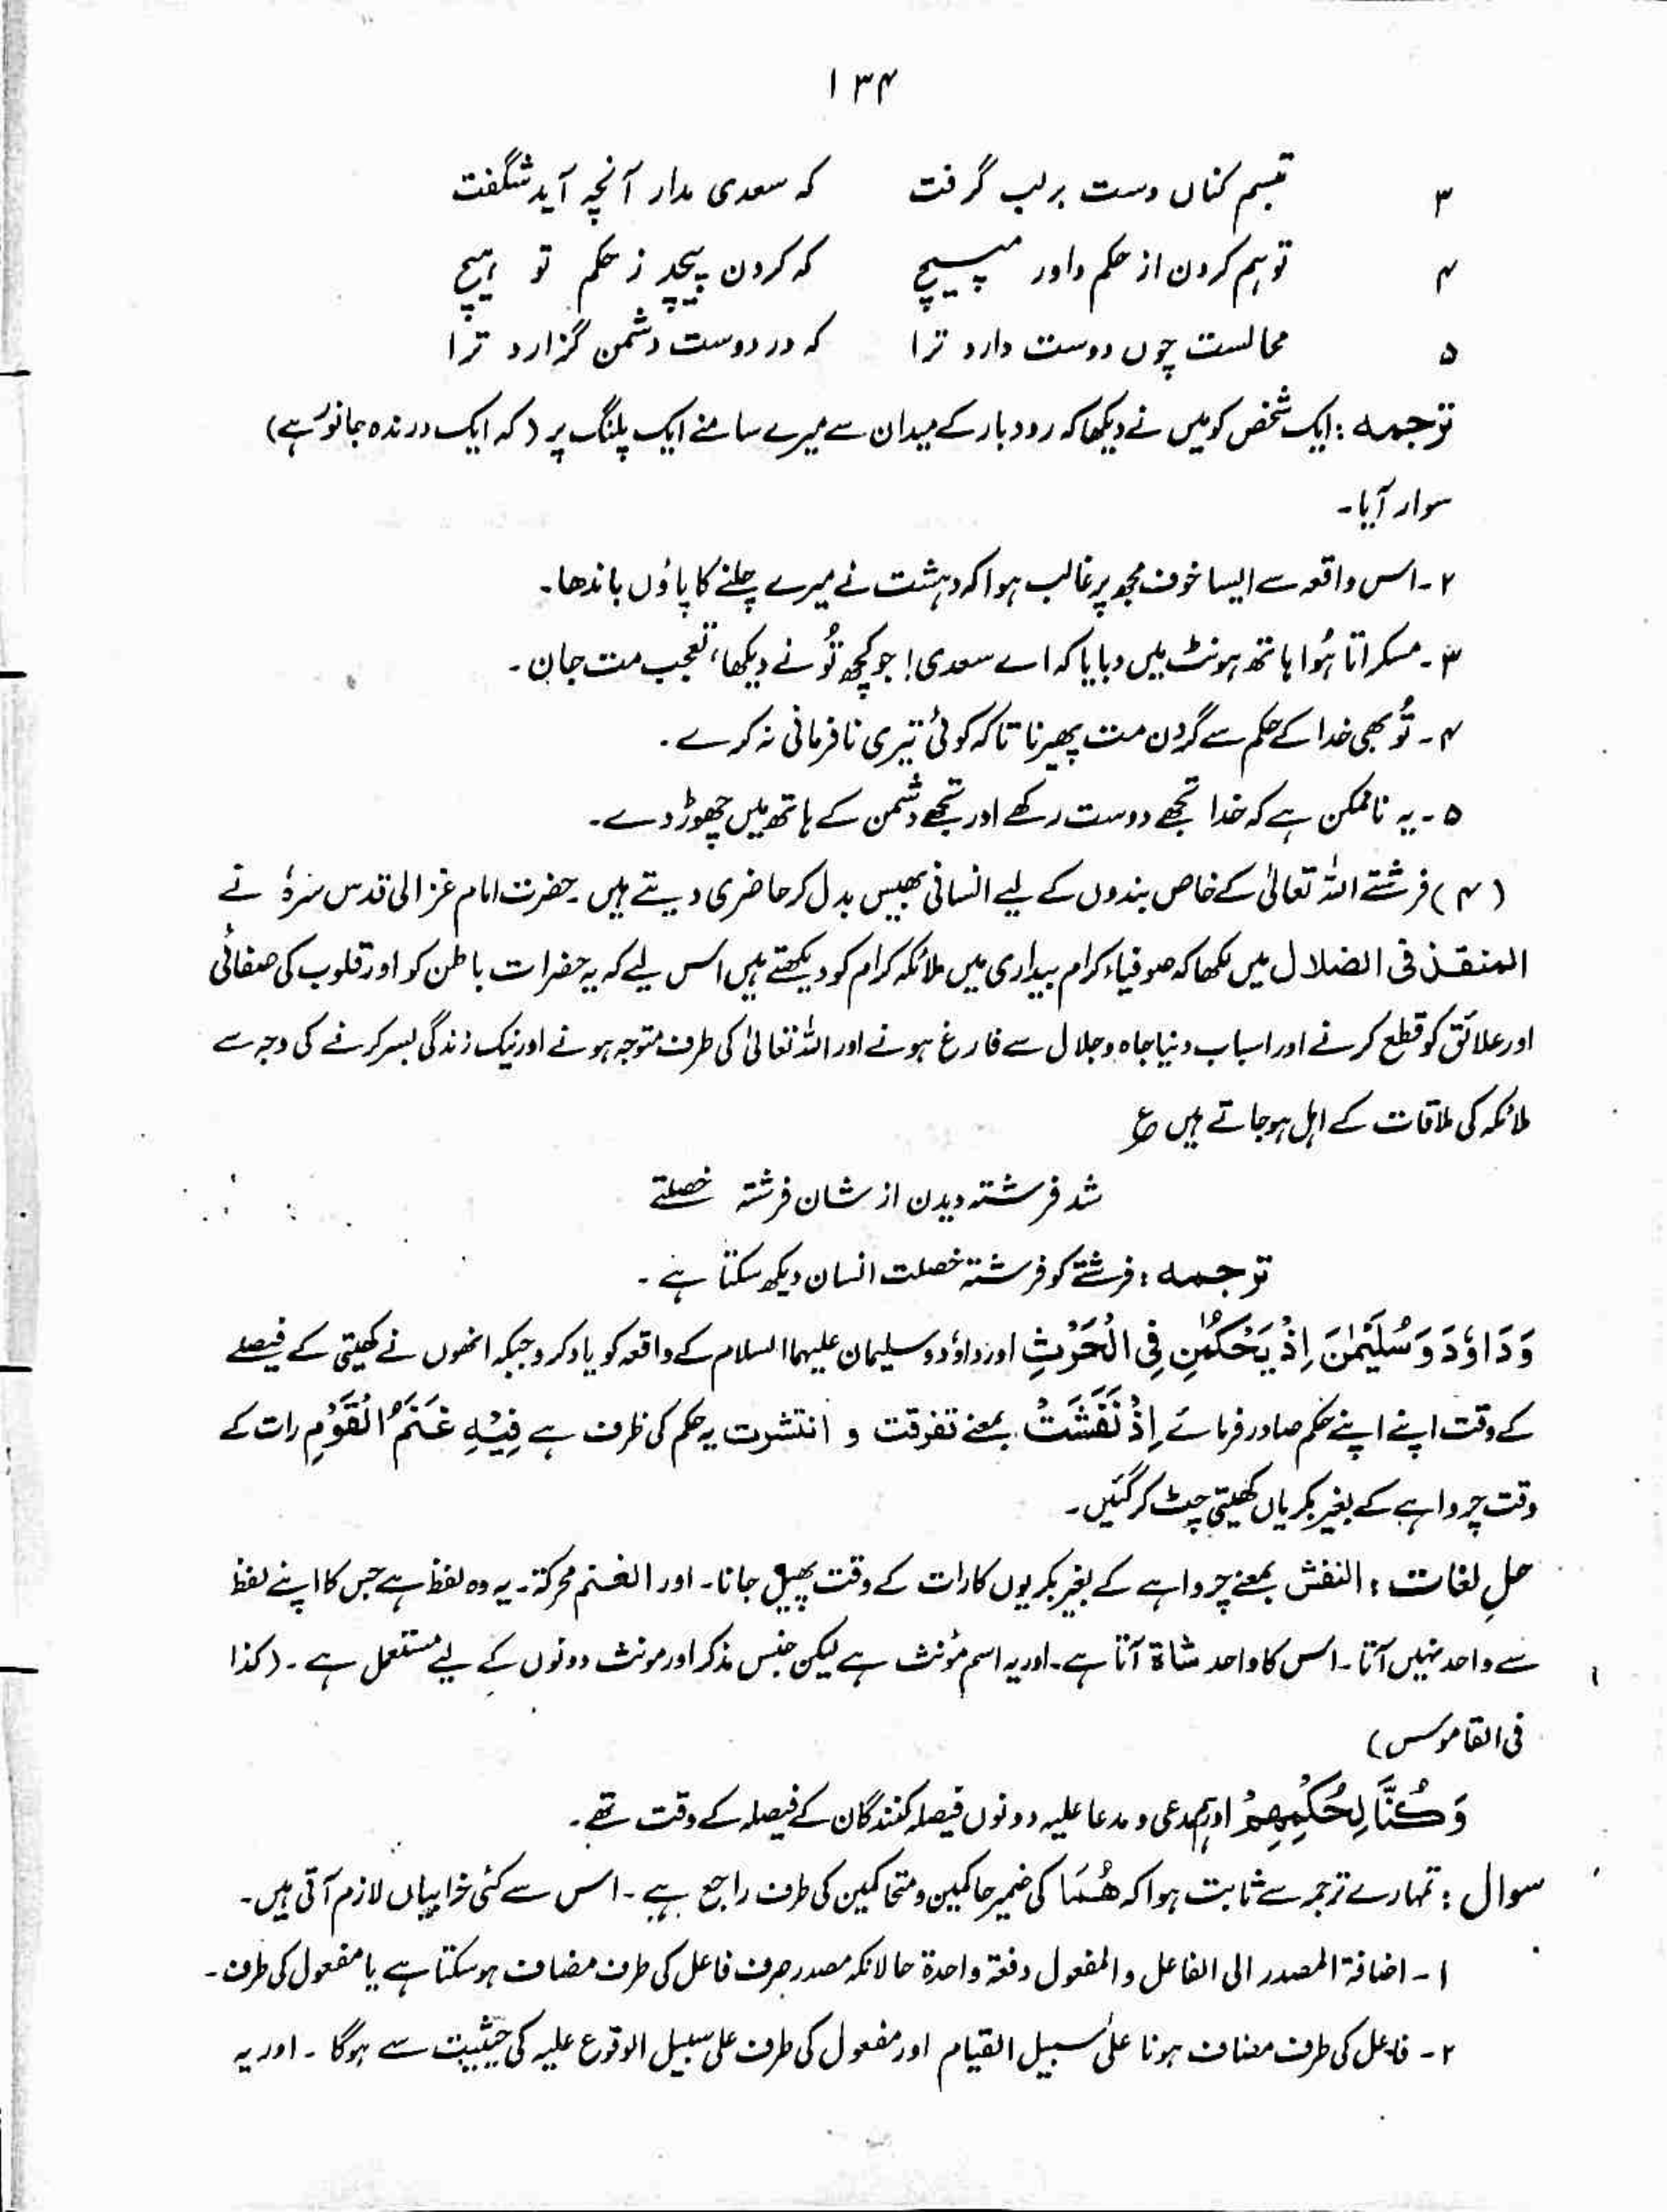 ۱۳۴
۳ تبسم کناں دست برلب گرفت که سعدی مدار آنچه آید شگفت
۴ تو ہم گردن از حکم داور مپیچ که گردن نپیچد ز حکم تو ہیچ
۵ محالست چوں دوست دارد ترا که در دوست دشمن گزارد ترا
ترجمہ : ایک شخص کو میں نے دیکھا کہ رودبار کے میدان سے میرے سامنے ایک پلنگ پر (کہ ایک درندہ جانور ہے)
سوار آیا۔
۲۔ اس واقعہ سے ایسا خوف مجھ پر غالب ہوا کہ دہشت نے میرے چلنے کا پاؤں باندھا۔
۳۔ مسکراتا ہُوا ہاتھ ہونٹ میں دبایا کہ اے سعدی! جو کچھ تُو نے دیکھا، تعجب مت جان۔
۴۔ تُو بھی خدا کے حکم سے گردن مت پھیرنا تاکہ کوئی تیری نافرمانی نہ کرے۔
۵۔ یہ ناممکن ہے کہ خدا تجھے دوست رکھے اور تجھے دشمن کے ہاتھ میں چھوڑ دے۔
(۴) فرشتے اللہ تعالیٰ کے خاص بندوں کے لیے انسانی بھیس بدل کر حاضری دیتے ہیں۔ حضرت امام غزالی قدس سرہٗ نے
المنقذ فی الضلال میں لکھا کہ صوفیاء کرام بیداری میں ملائکہ کرام کو دیکھتے ہیں اس لیے کہ یہ حضرات باطن کو اور قلوب کی صفائی
اور علائق کو قطع کرنے اور اسباب دنیا جاہ و جلال سے فارغ ہونے اور اللہ تعالیٰ کی طرف متوجہ ہونے اور نیک زندگی بسر کرنے کی وجہ سے
ملائکہ کی ملاقات کے اہل ہو جاتے ہیں ع
شد فرشتہ دیدن از شان فرشتہ خصلتے
ترجمہ : فرشتے کو فرشتہ خصلت انسان دیکھ سکتا ہے۔
وَ دَاوٗدَ وَ سُلَیْمٰنَ اِذْ یَحْکُمٰنِ فِی الْحَرْثِ اور داؤد و سلیمان علیہما السلام کے واقعہ کو یاد کرو جبکہ انھوں نے کھیتی کے فیصلے
کے وقت اپنے اپنے حکم صادر فرمائے اِذْ نَفَشَتْ بمعنے تفرقت و انتشرت یہ حکم کی ظرف ہے فِیْہِ غَنَمُ الْقَوْمِ رات کے
وقت چرواہے کے بغیر بکریاں کھیتی چٹ کر گئیں۔
حلِ لغات : النفش بمعنے چرواہے کے بغیر بکریوں کا رات کے وقت پھیل جانا۔ اور الغنم محرکۃ۔ یہ وہ لفظ ہے جس کا اپنے لفظ
سے واحد نہیں آتا۔ اس کا واحد شاۃ آتا ہے۔ اور یہ اسم مؤنث ہے لیکن جنس مذکر اور مونث دونوں کے لیے مستعمل ہے۔ (کذا
فی القاموس)
وَ کُنَّا لِحُکْمِھِمْ اور ہم مدعی و مدعا علیہ دونوں فیصلہ کنندگان کے فیصلہ کے وقت تھے۔
سوال : تمہارے ترجمہ سے ثابت ہوا کہ ھُمَا کی ضمیر حاکمین و متحاکمین کی طرف راجع ہے۔ اس سے کئی خرابیاں لازم آتی ہیں۔
۱۔ اضافۃ المصدر الی الفاعل و المفعول دفعۃ واحدۃ حالانکہ مصدر صرف فاعل کی طرف مضاف ہو سکتا ہے یا مفعول کی طرف۔
۲۔ فاعل کی طرف مضاف ہونا علیٰ سبیل القیام اور مفعول کی طرف علی سبیل الوقوع علیہ کی حیثیت سے ہوگا۔ اور یہ